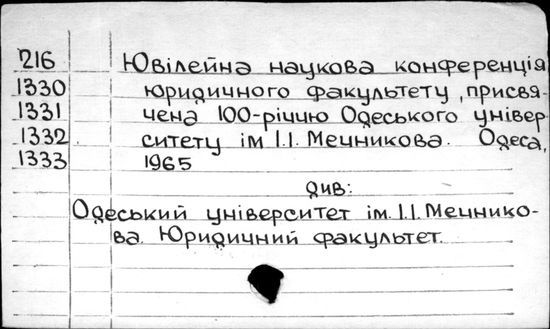 216 Ювілейна наукова конференція
1330 юридичного факультету, присвя-
1331 чена 100-річчю Одеського універ-
1332 ситету ім І.І. Мечникова. Одеса,
1333 1965
див:
Одеський університет ім. І.І. Мечнико-
ва. Юридичний факультет.